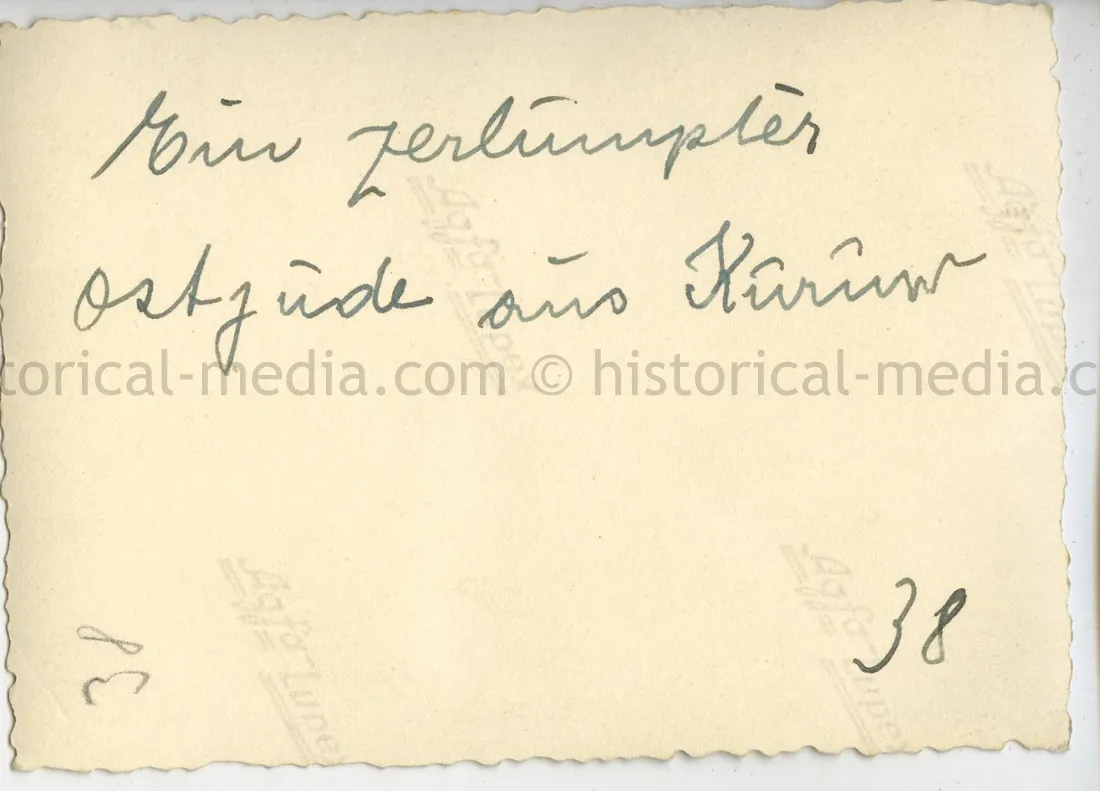 Ein zerlumpter
Ostjude aus Kuruw
historical-media.com © historical-media.c
38
38
Agfa-Lupex
Agfa Lupex
Agfa-Lupex
Agfa-Lupex